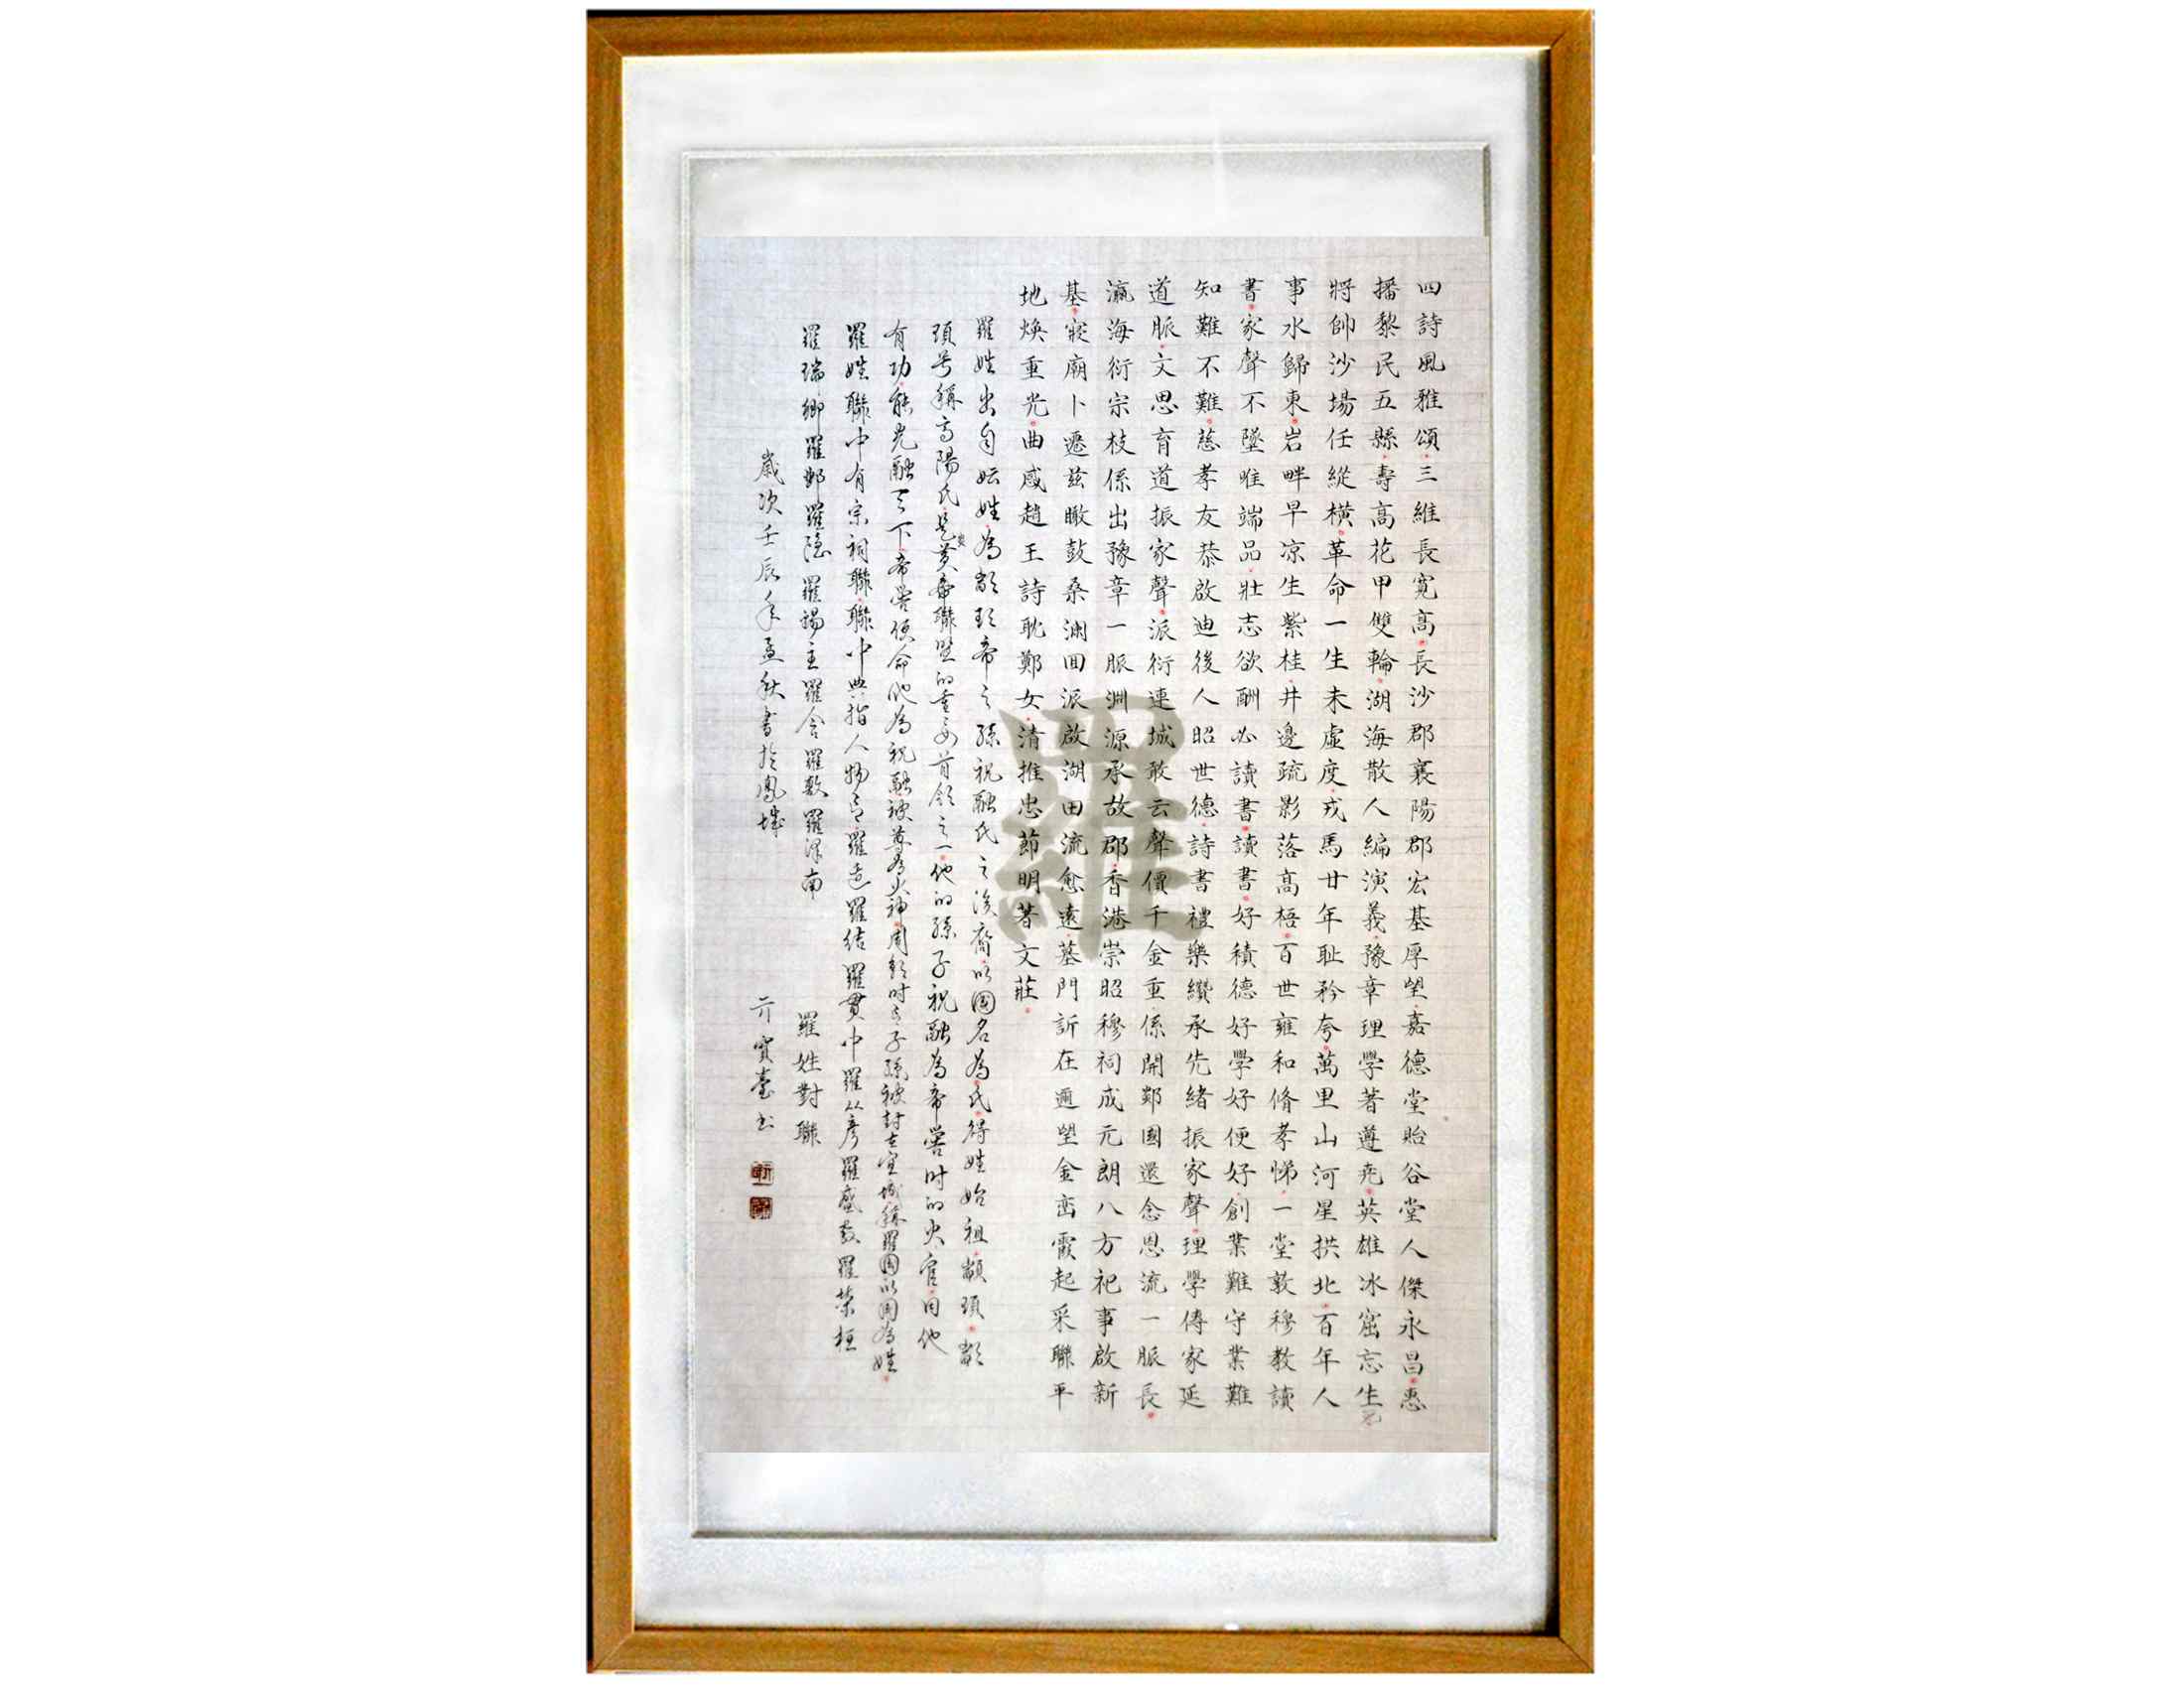 四詩風雅頌三維長寬高長沙郡襄陽郡宏基厚望嘉德堂貽谷堂人傑永昌惠
播黎民五縣壽高花甲雙輪湖海散人編演義豫章理學著遵堯英雄冰窟忘生死
將帥沙場任縱橫革命一生未虛度戎馬廿年耻矜夸萬里山河星拱北百年人
事水歸東岩畔早凉生紫桂井邊疏影落高梧百世雍和脩孝悌一堂敦穆教讀
書家聲不墜唯端品壯志欲酬必讀書讀書好積德好學好便好創業難守業難
知難不難慈孝友恭啟迪後人昭世德詩書禮樂纘承先緒振家聲理學傳家延
道脈文思育道振家聲派衍連城敢云聲價千金重係開鄖國還念恩流一脈長
瀛海衍宗枝係出豫章一脈淵源承故郡香港崇昭穆祠成元朗八方祀事啟新
基寢廟卜遷茲瞰鼓桑渊回派啟湖田流愈遠墓門訢在邇望金峦霞起采聯平
地煥重光曲感趙王詩耽鄭女清推忠節明著文莊
羅
羅姓出自妘姓為顓頊帝之孫祝融氏之後裔以國名為氏得姓始祖顓頊顓
頊号稱高陽氏是黃帝聯盟的重要首領之一他的孫子祝融為帝嚳时的火官因他
有功能光融天下帝嚳便命他為祝融被尊為火神周朝时之子孫被封在宜城稱羅國以國為姓
羅姓聯中有宗祠聯聯中典指人物有羅适羅結羅貫中羅从彦羅盛教羅榮桓
羅瑞卿羅鄴羅隱羅揚主羅含羅敷羅澤南
羅姓對聯
歲次壬辰年孟秋書於鳳城
亓寶臺书